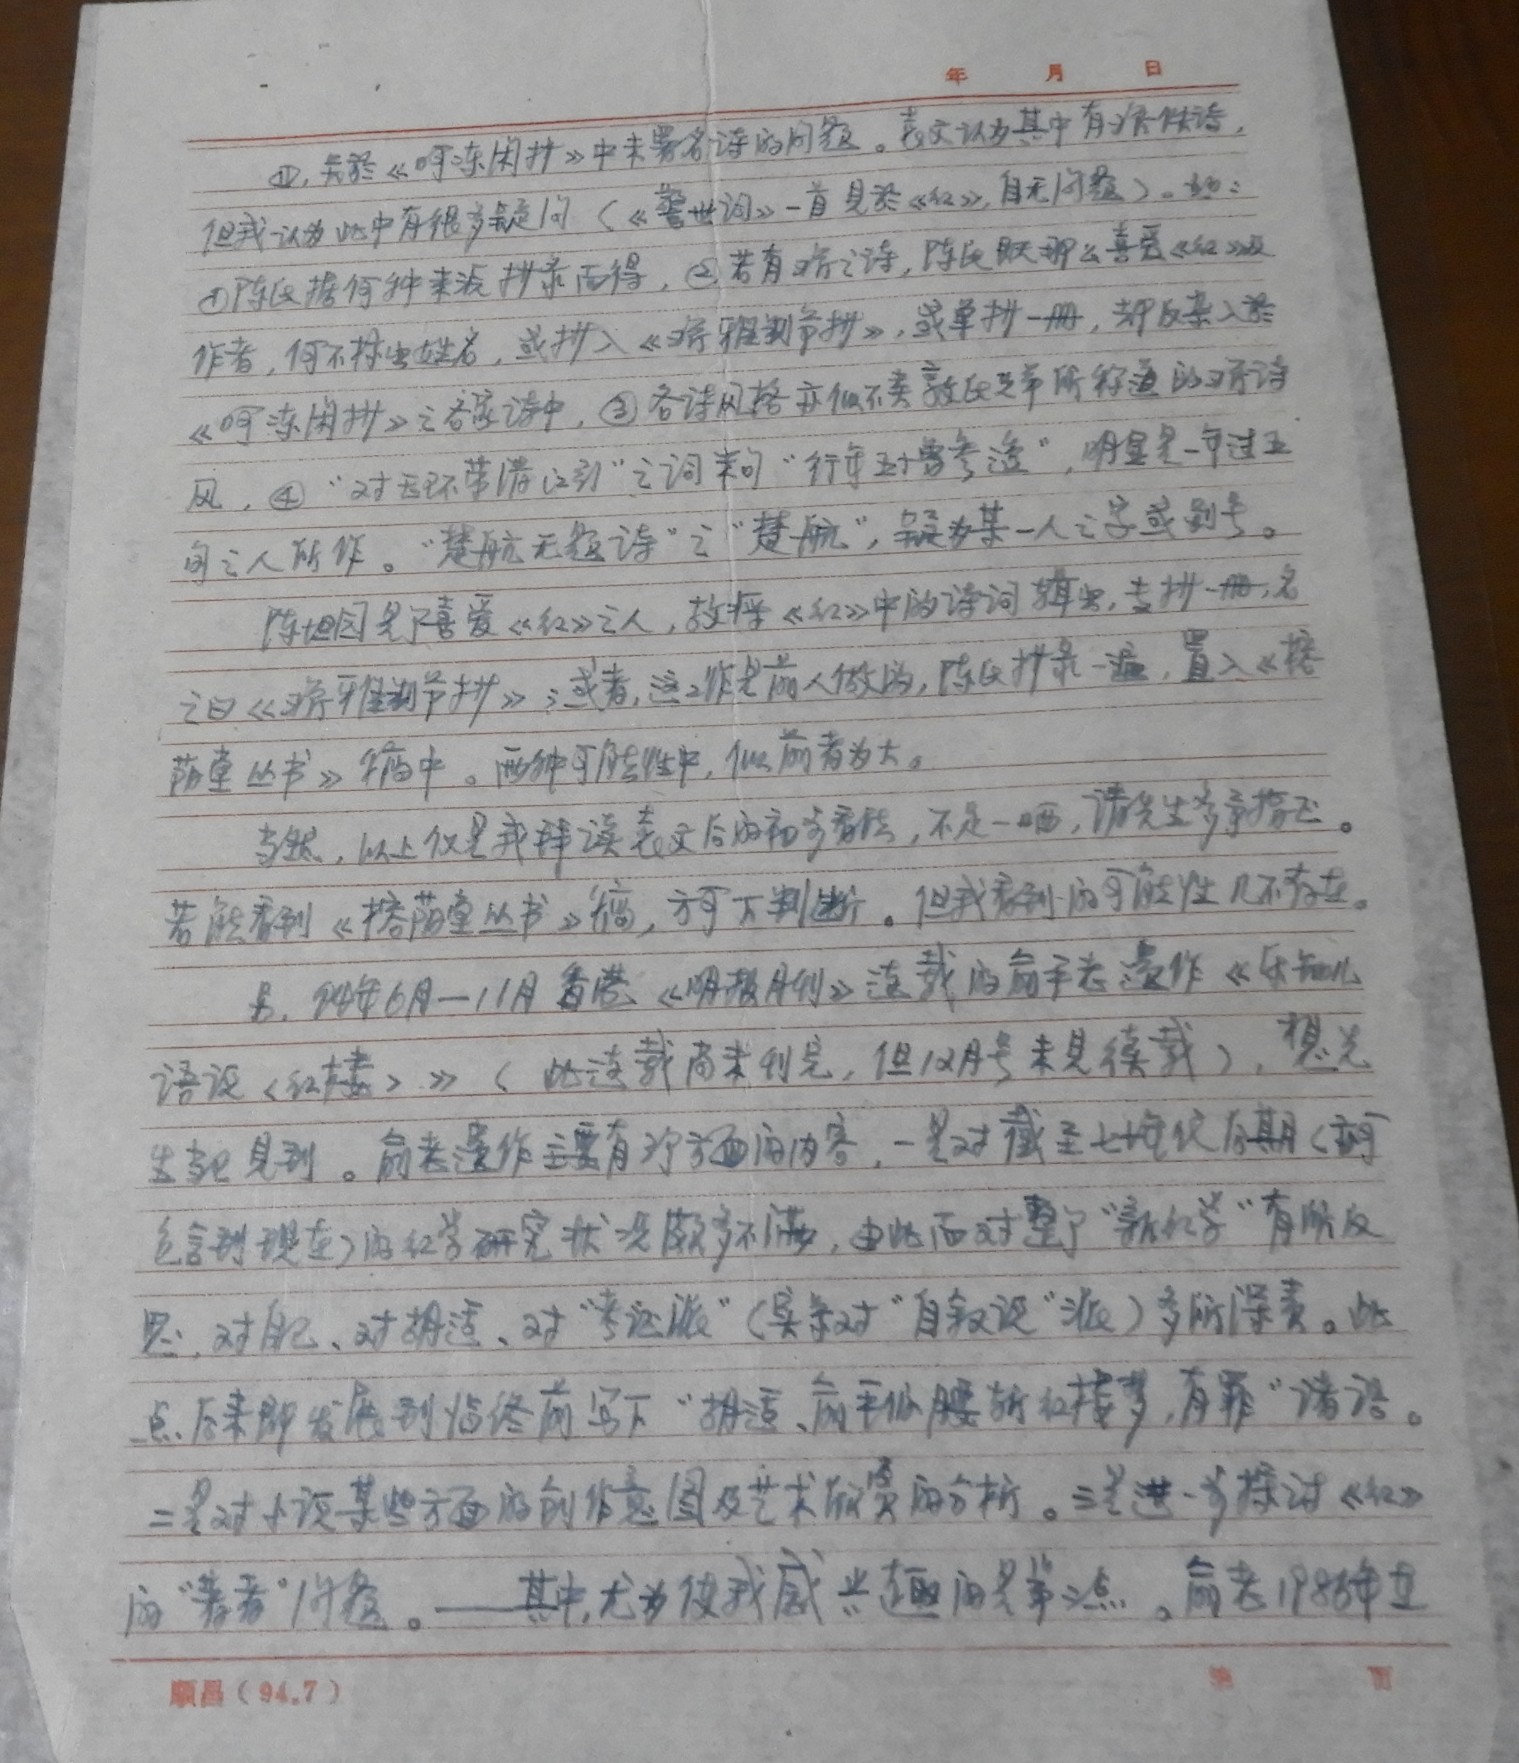 年 月 日
①, 关於《呵冻闲抄》中未署名诗的问题。袁文认为其中有雪芹佚诗，
但我认为此中有很多疑问（《警世词》一首见於《红》，自无问题）。如：
①陈氏据何种来源抄录而得，②若有雪芹之诗，陈氏既那么喜爱《红》及
作者，何不标出姓名，或抄入《雪芹雅制节抄》，或单抄一册，却反杂入於
《呵冻闲抄》之各家诗中，③各诗风格亦似不类敦氏兄弟所称道的雪芹诗
风，④“对玉环带清江引”之词末句“行年五十曾参透”，明显是一年过五
旬之人所作。“楚航无题诗”之“楚航”，疑为某一人之字或别号。
陈坦园是个喜爱《红》之人，故将《红》中的诗词辑出，专抄一册，名
之曰《雪芹雅制节抄》；或者，这工作是前人做的，陈氏抄录一遍，置入《榕
荫堂丛书》稿中。两种可能性中，似前者为大。
当然，以上仅是我拜读袁文后的初步看法，不足一哂，请先生多予指正。
若能看到《榕荫堂丛书》稿，方可下判断。但我看到的可能性几不存在。
另，94年6月—11月香港《明报月刊》连载的俞平老遗作《乐知儿
语说〈红楼〉》（此连载尚未刊完，但12月号未见续载），想先
生当已见到。俞老遗作主要有三个方面的内容，一是对截至七十年代后期（亦可
包含到现在）的红学研究状况颇多不满，由此而对整个“新红学”有所反
思，对自己、对胡适、对“考证派”（实系对“自叙说”派）多所深责。此
点后来即发展到临终前写下“胡适、俞平伯腰斩红楼梦，有罪”诸语。
二是对小说某些方面的创作意图及艺术欣赏的分析。三是进一步探讨《红》
的“著者”问题。——其中，尤为使我感兴趣的是第三点。俞老1986年在
順昌（94.7） 第 页